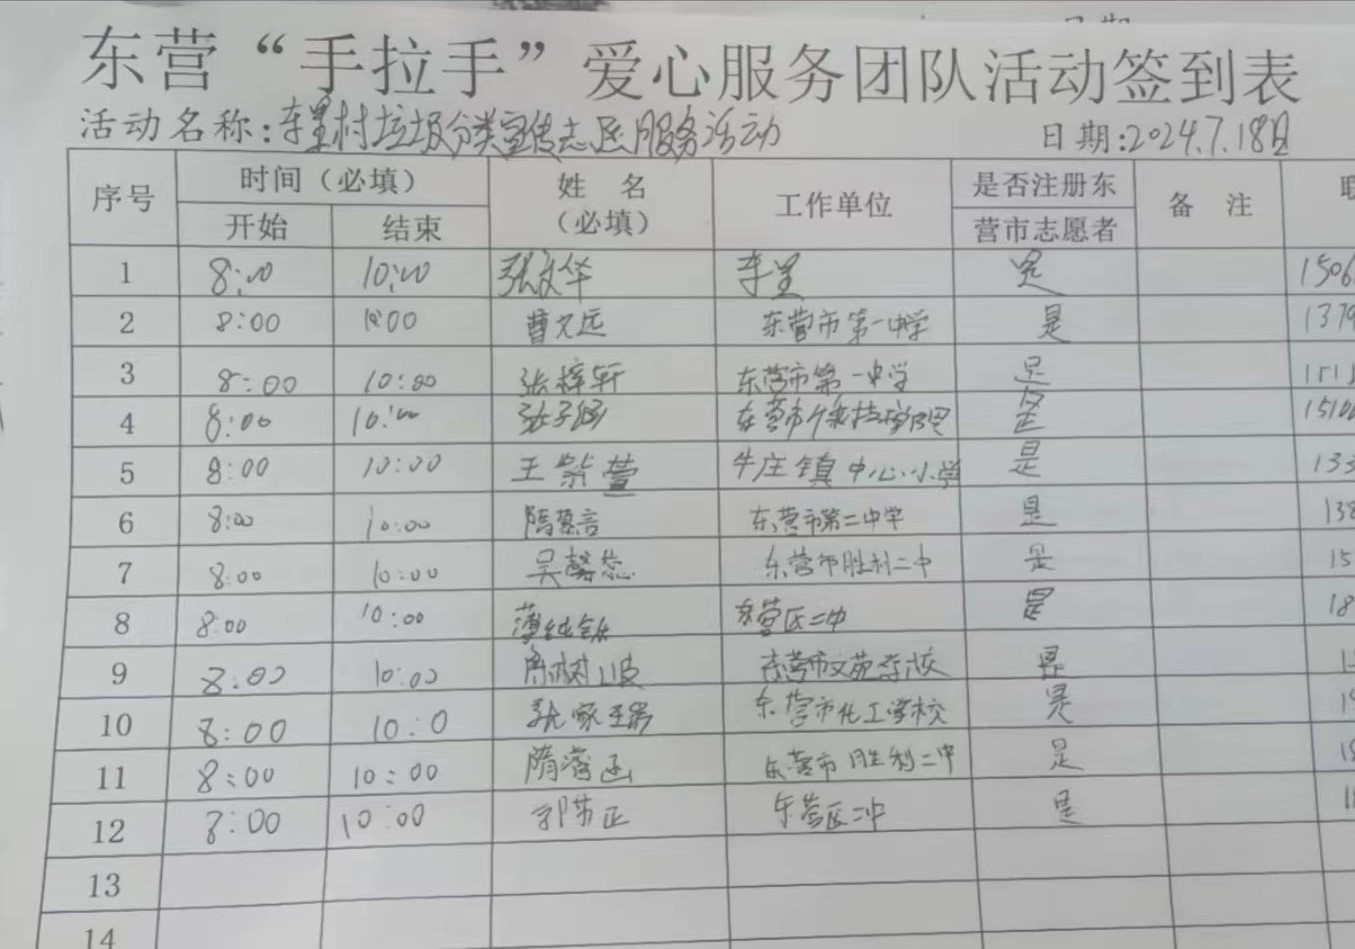 东营“手拉手”爱心服务团队活动签到表
活动名称:李星村垃圾分类宣传志愿服务活动 日期:2024.7.18日
序号 时间（必填） 姓 名 （必填） 工作单位 是否注册东 营市志愿者 备 注
开始 结束
1 8:00 10:00 张文华 是 1506
2 8:00 10:00 曹文远 东营市第一中学 是 1379
3 8:00 10:00 张梓轩 东营市第一中学 是
4 8:00 10:00 东营市 是 1510
5 8:00 10:00 王紫萱 牛庄镇中心小学 是 133
6 8:00 10:00 隋慕言 东营市第二中学 是 138
7 8:00 10:00 吴馨蕊 东营市胜利二中 是 15
8 8:00 10:00 东营区二中 是 18
9 8:00 10:00 东营市文苑学校 是
10 8:00 10:0 东营市化工学校 是
11 8:00 10:00 东营市胜利二中 是 18
12 8:00 10:00 东营区二中 是
13
14